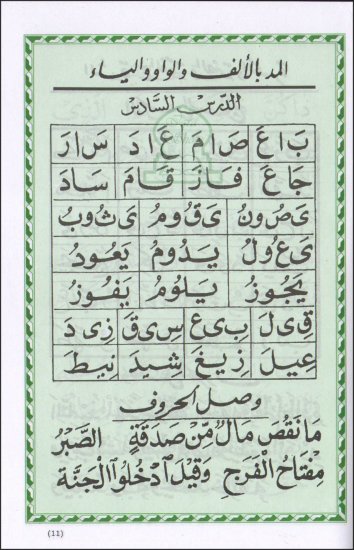 المد بالألف والواو والياء
الدرس السادس
بَ اعَ صَ امَ عَ ادَ سَ ارَ
جَ اعَ فَ ازَ قَ امَ سَ ادَ
يَ صُ ونُ يَ قُ و مُ يَ ثُ وبُ
يَ عُ ولُ يَ دُ ومُ يَعُودُ
يَجُوزُ يَلُومُ يَفُوزُ
قِ ي لَ بِ ي عَ سِ ي قَ زِ ي دَ
عِيلَ زِيغَ شِيدَ نِيطَ
وصل الحروف
مَا نَقُصَ مَالٌ مِّنْ صَدَقَةٍ الصَّبْرُ
مِفْتَاحُ الْفَرَجِ وَقِيلَ ادْخُلُوا الْجَنَّةَ
(11)